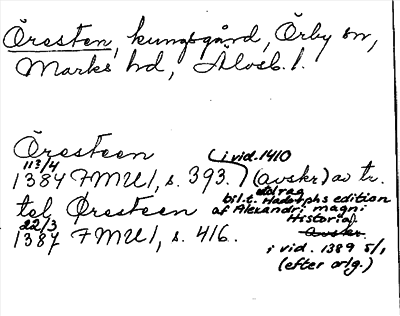 Öresten, kungsgård, Örby sn,
Marks hd, Älvsb. l.
Öresteen (i vid. 1410
11 3/4
1384 FMU 1, s. 393. ) (avskr) av tr.
utdrag
bil.t. Hadorphs edition
tel Øresteen af Alexandri magni
Historia)
22/3
1387 FMU 1, s. 416. Avskr.
i vid. 1389 5/1
(efter orig.)